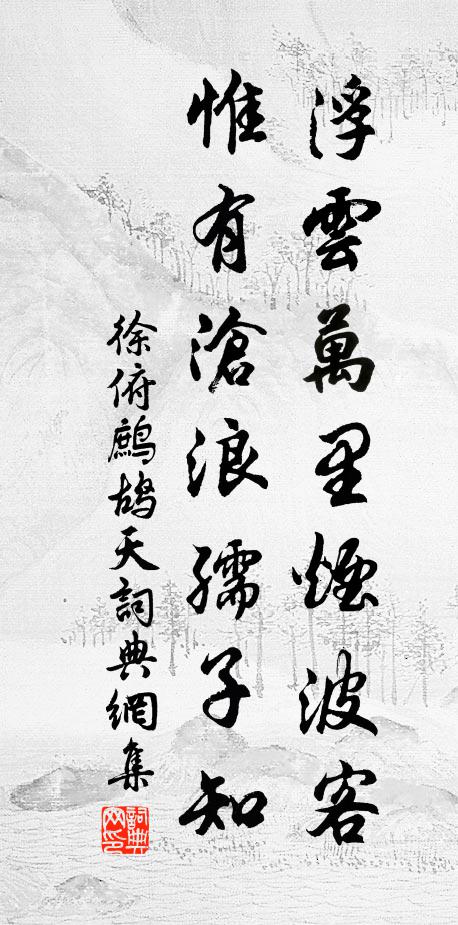 浮雲萬里煙波客
惟有滄浪孺子知
徐俯鷓鴣天詞典網集
詞典
网印